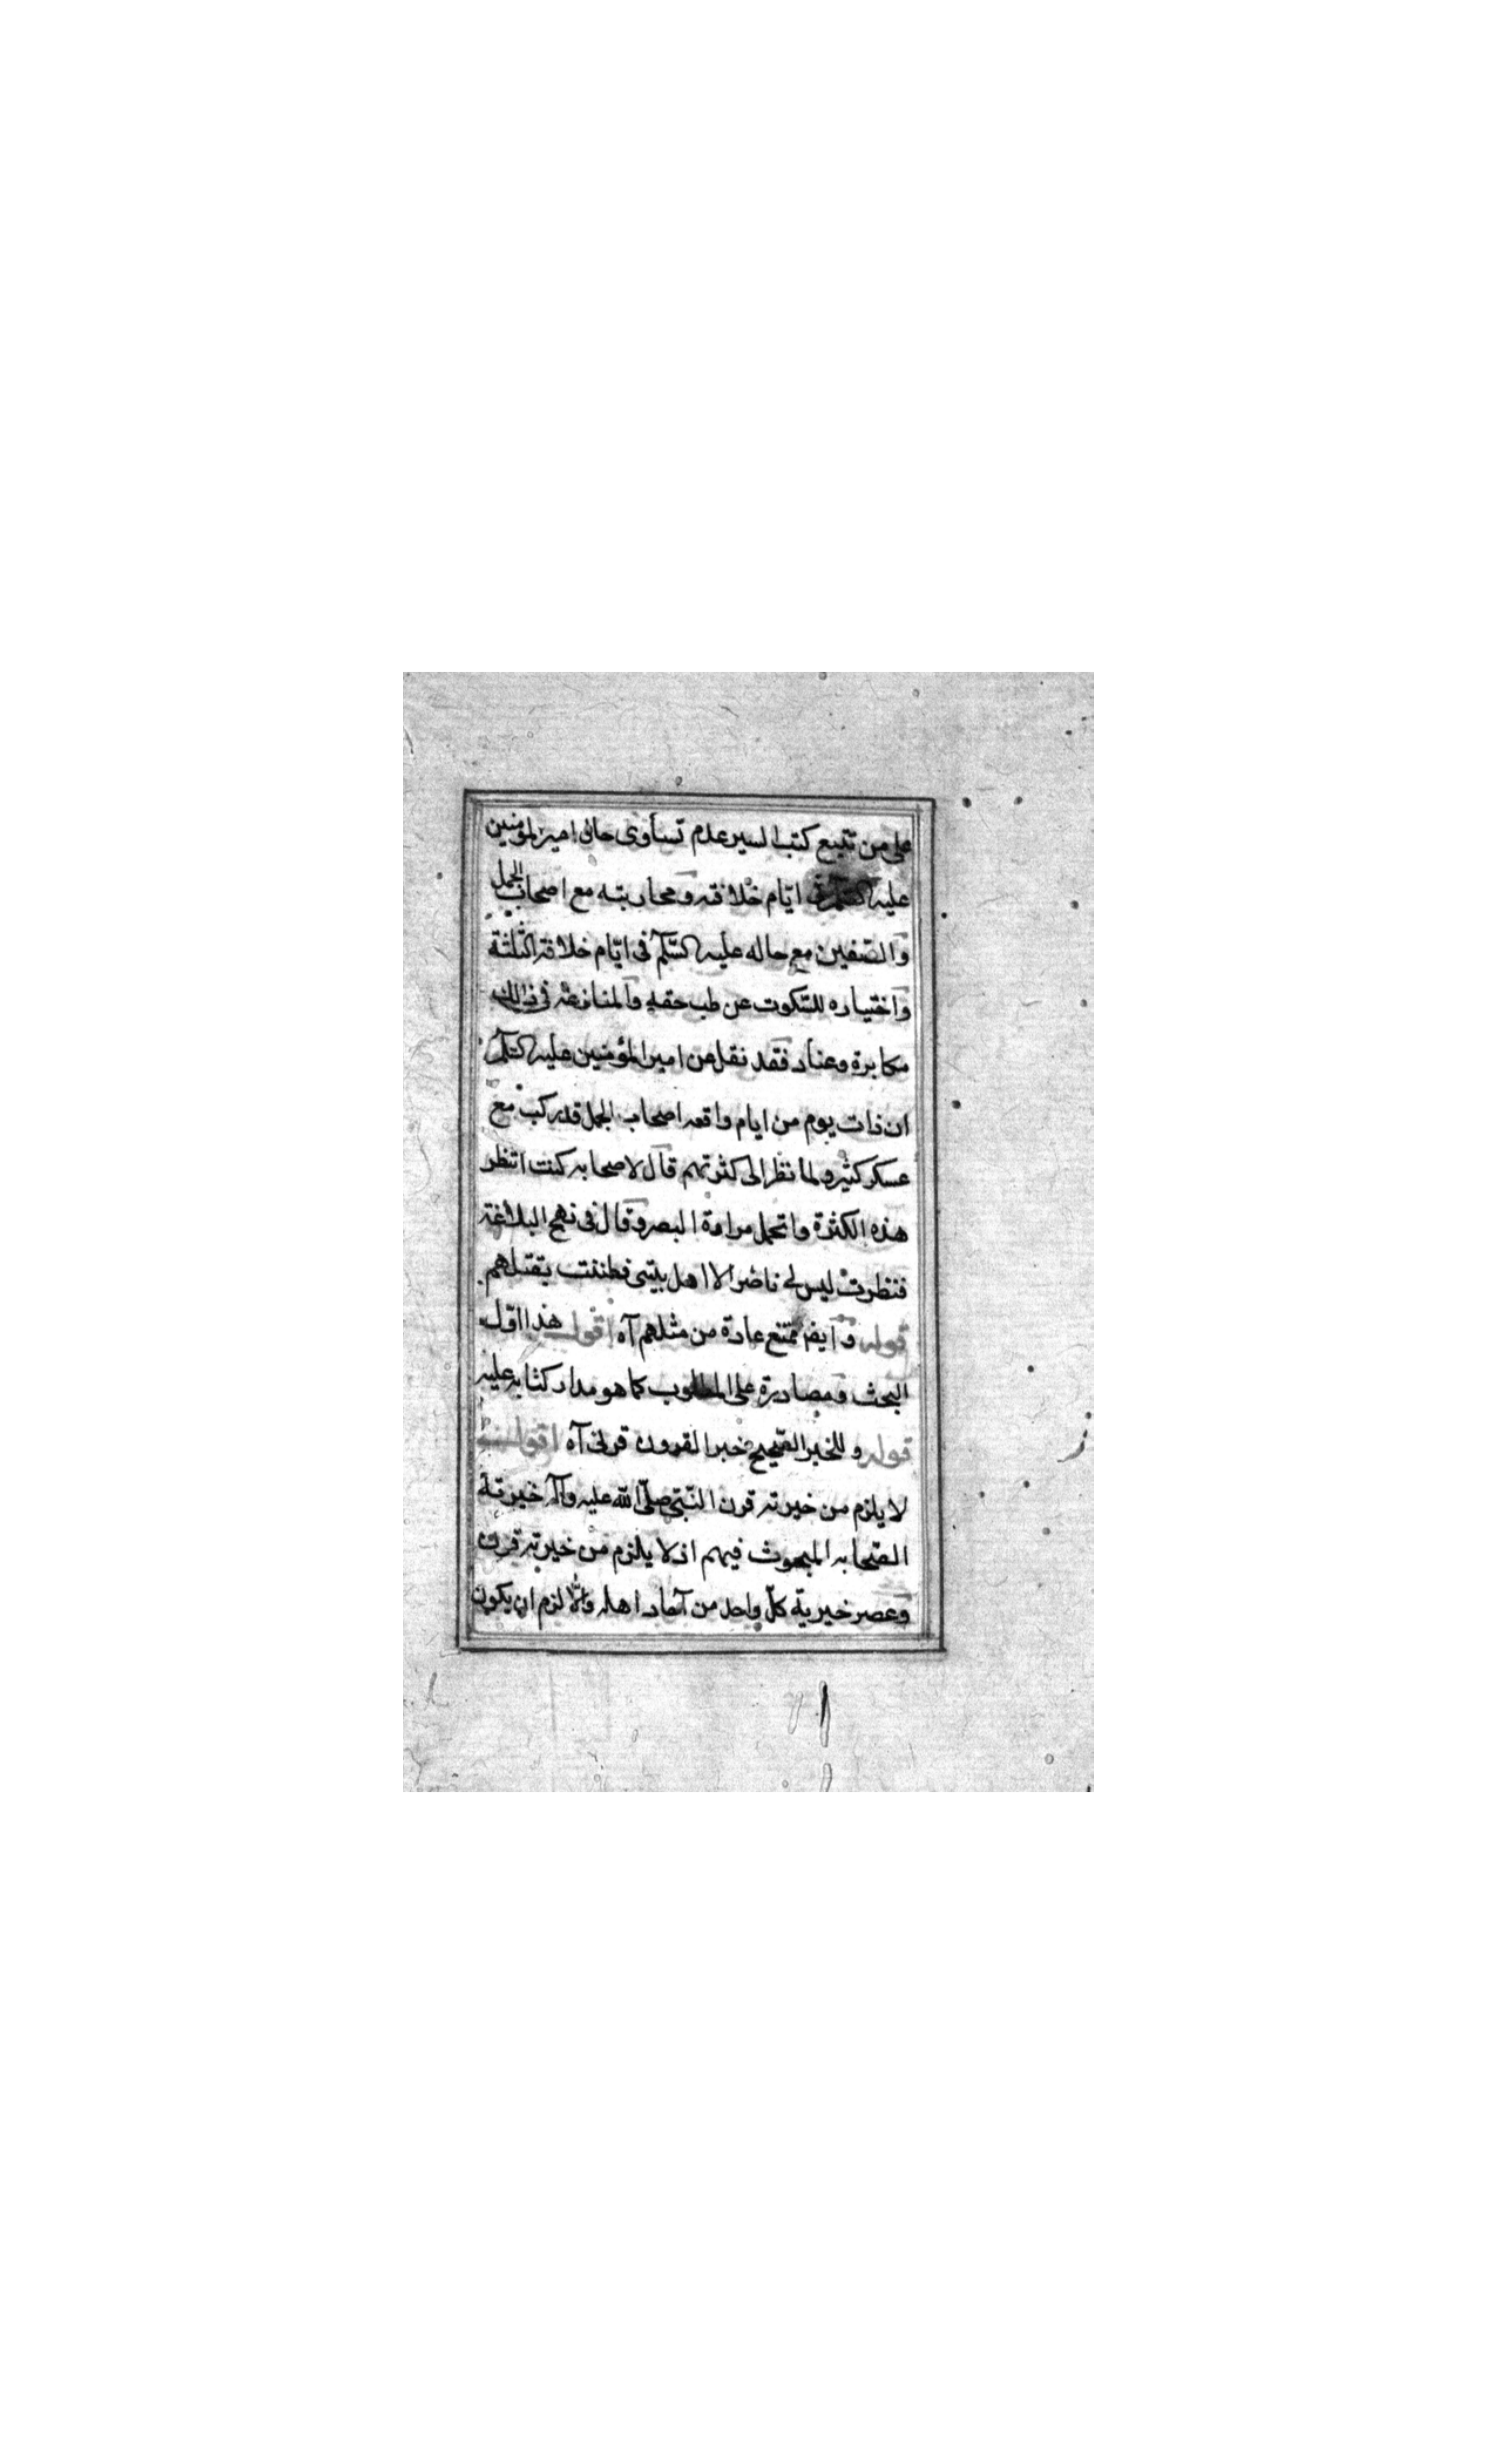 على من تتبع كتب السير عدم تساوى حالى امير المؤمنين
عليه السلام فى ايّام خلافته ومحاربته مع اصحاب الجمل
والصّفين مع حاله عليه السّلام فى ايّام خلافة الثلثة
واختياره للسّكوت عن طب حقه والمنازعة فى ذالك
مكابرة وعناد فقد نقل عن امير المؤمنين عليه السّلام
ان ذات يوم من ايام واقعه اصحاب الجمل قد ركب مع
عسكر كثير ولما نظر الى كثرتهم قال لاصحابه كنت انتظر
هذه الكثرة واتحمل مرارة البصر وقال فى نهج البلاغة
فنظرت ليس لى ناصر الا اهل بيتى فظننت بقتلهم
قوله وايضا ممتنع عادة من مثلهم آه اقول هذا اوّل
البحث ومصادرة على المطلوب كما هو مدار كتابه عليه
قوله وللخبر الصّحيح خير القرون قرنى آه اقول
لا يلزم من خيرته قرن النّبىّ صلّى الله عليه وآله خيرتة
الصّحابه المبحوث فيهم اذ لا يلزم من خيرته قرن
وعصر خيرية كلّ واحد من آحاد اهله والّا لزم ان يكون